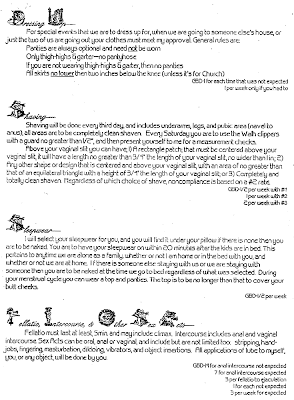 Dressing Up
For special events that we are to dress up for, when we are going to someone else's house, or
just the two of us are going out your clothes must meet my approval. General rules are:
Panties are always optional and need not be worn
Only thigh-highs & garter—no pantyhose
If you are not wearing thigh-highs & garter, then no panties
All skirts no lower then two inches below the knee (unless it's for Church)
GBD-1 for each time that was not expected
1 per week only if you had to
Shaving—
Shaving will be done every third day, and includes underarms, legs, and pubic area (navel to
anus), all areas are to be completely clean shaven. Every Saturday you are to use the Wahl clippers
with a guard no greater than 1/2", and then present yourself to me for a measurement checks.
Above your vaginal slit you can have; 1) A rectangle patch; that must be centered above your
vaginal slit, it will have a length no greater than 3/4" the length of your vaginal slit, no wider than lin; 2)
Any other shape or design that is centered and above your vaginal slit, with an area of no greater than
that of an equilateral triangle with a height of 3/4" the length of your vaginal slit; or 3) Completely and
totally clean shaven. Regardless of which choice of shave, noncompliance is based on a #2 rate.
GBD-1/2 per week with #1
1 per week with #2
2 per week with #3
Sleepwear—
I will select your sleepwear for you, and you will find it under your pillow if there is none then you
are to be naked. You are to have your sleepwear on within 20 minutes after the kids are in bed. This
pertains to anytime we are alone as a family, whether or not I am home or in the bed with you, and
whether or not we are at home. If there is someone else staying with us or we are staying with
someone then you are to be naked at the time we go to bed regardless of what was selected. During
your menstrual cycle you can wear a top and panties. The top is to be no longer than that to cover your
butt cheeks.
GBD-1/2 per week
Fellatio, Intercourse, & Other Sex Acts—
Fellatio must last at least, 5min and may include climax. Intercourse includes anal and vaginal
intercourse. Sex Acts can be oral, anal or vaginal; and include but are not limited too: stripping, hand-
jobs, fingering, masturbation, dildoing, vibrators, and object insertions. All applications of lube to myself,
you, or any object, will be done by you.
GBD-14 for anal intercourse not expected
7 for anal intercourse expected
3 per fellatio to ejaculation
1 for each not expected
3 per week for expected